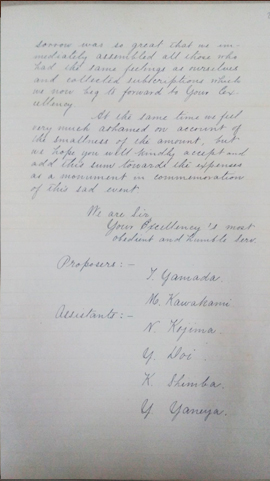 sorrow was so great that we im-
mediately assembled all those who
had the same feelings as ourselves
and collected subscriptions which
we now beg to forward to Your Ex-
cellency.
At the same time we feel
very much ashamed on account of
the smallness of the amount, but
we hope you will kindly accept and
add this sum towards the expenses
as a monument in commemoration
of this sad event.
We are Sir,
Your Excellency's most
obedient and humble Serv.
Proposers:-
T. Yamada.
M. Kawakami
Assistants:-
N. Kojima.
Y. Doi.
K. Shimba.
Y. Yaneya.